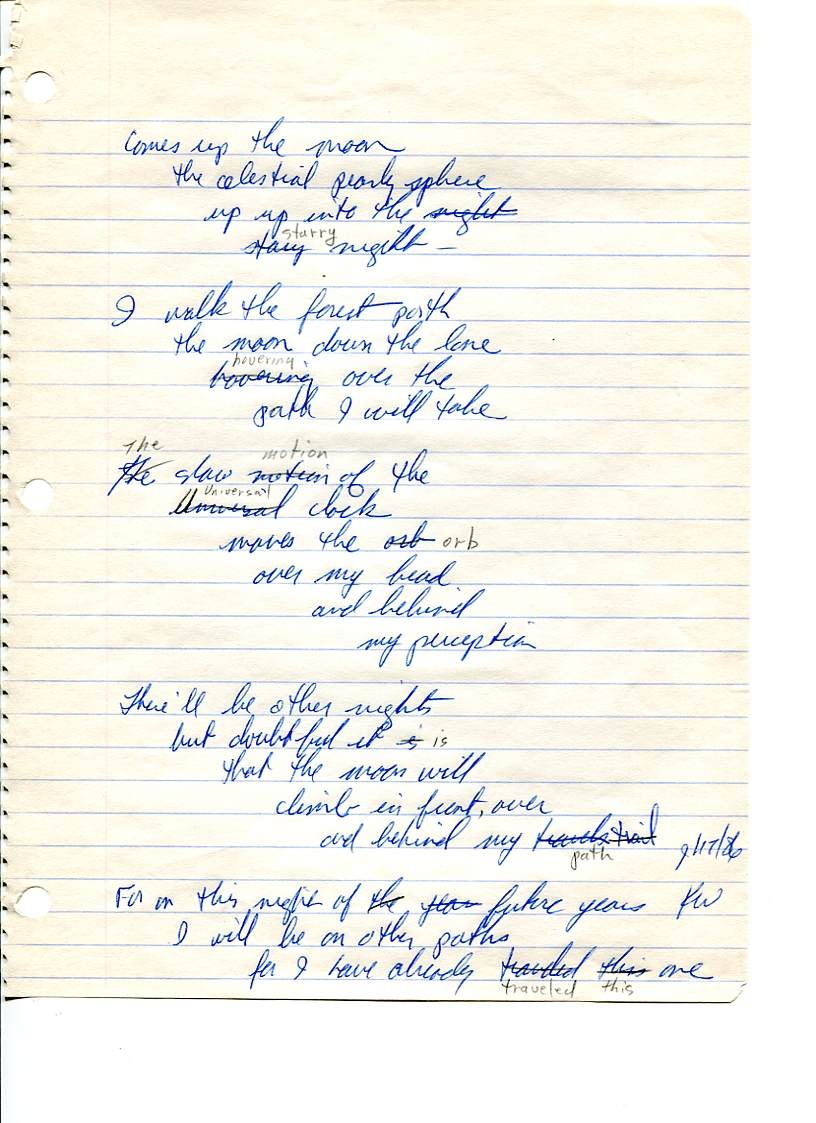 Comes up the moon
the celestial pearly sphere
up up into the night
starry
stary night —
I walk the forest path
the moon down the lane
hovering
hovering over the
path I will take
The motion
The slow motion of the
Universal
Universal clock
moves the orb orb
over my head
and behind
my perception
There'll be other nights
but doubtful it is is
that the moon will
climb in front, over
and behind my travels trail
path 9/17/86
For on this night of the year future years KW
I will be on other paths
for I have already traveled this one
traveled this